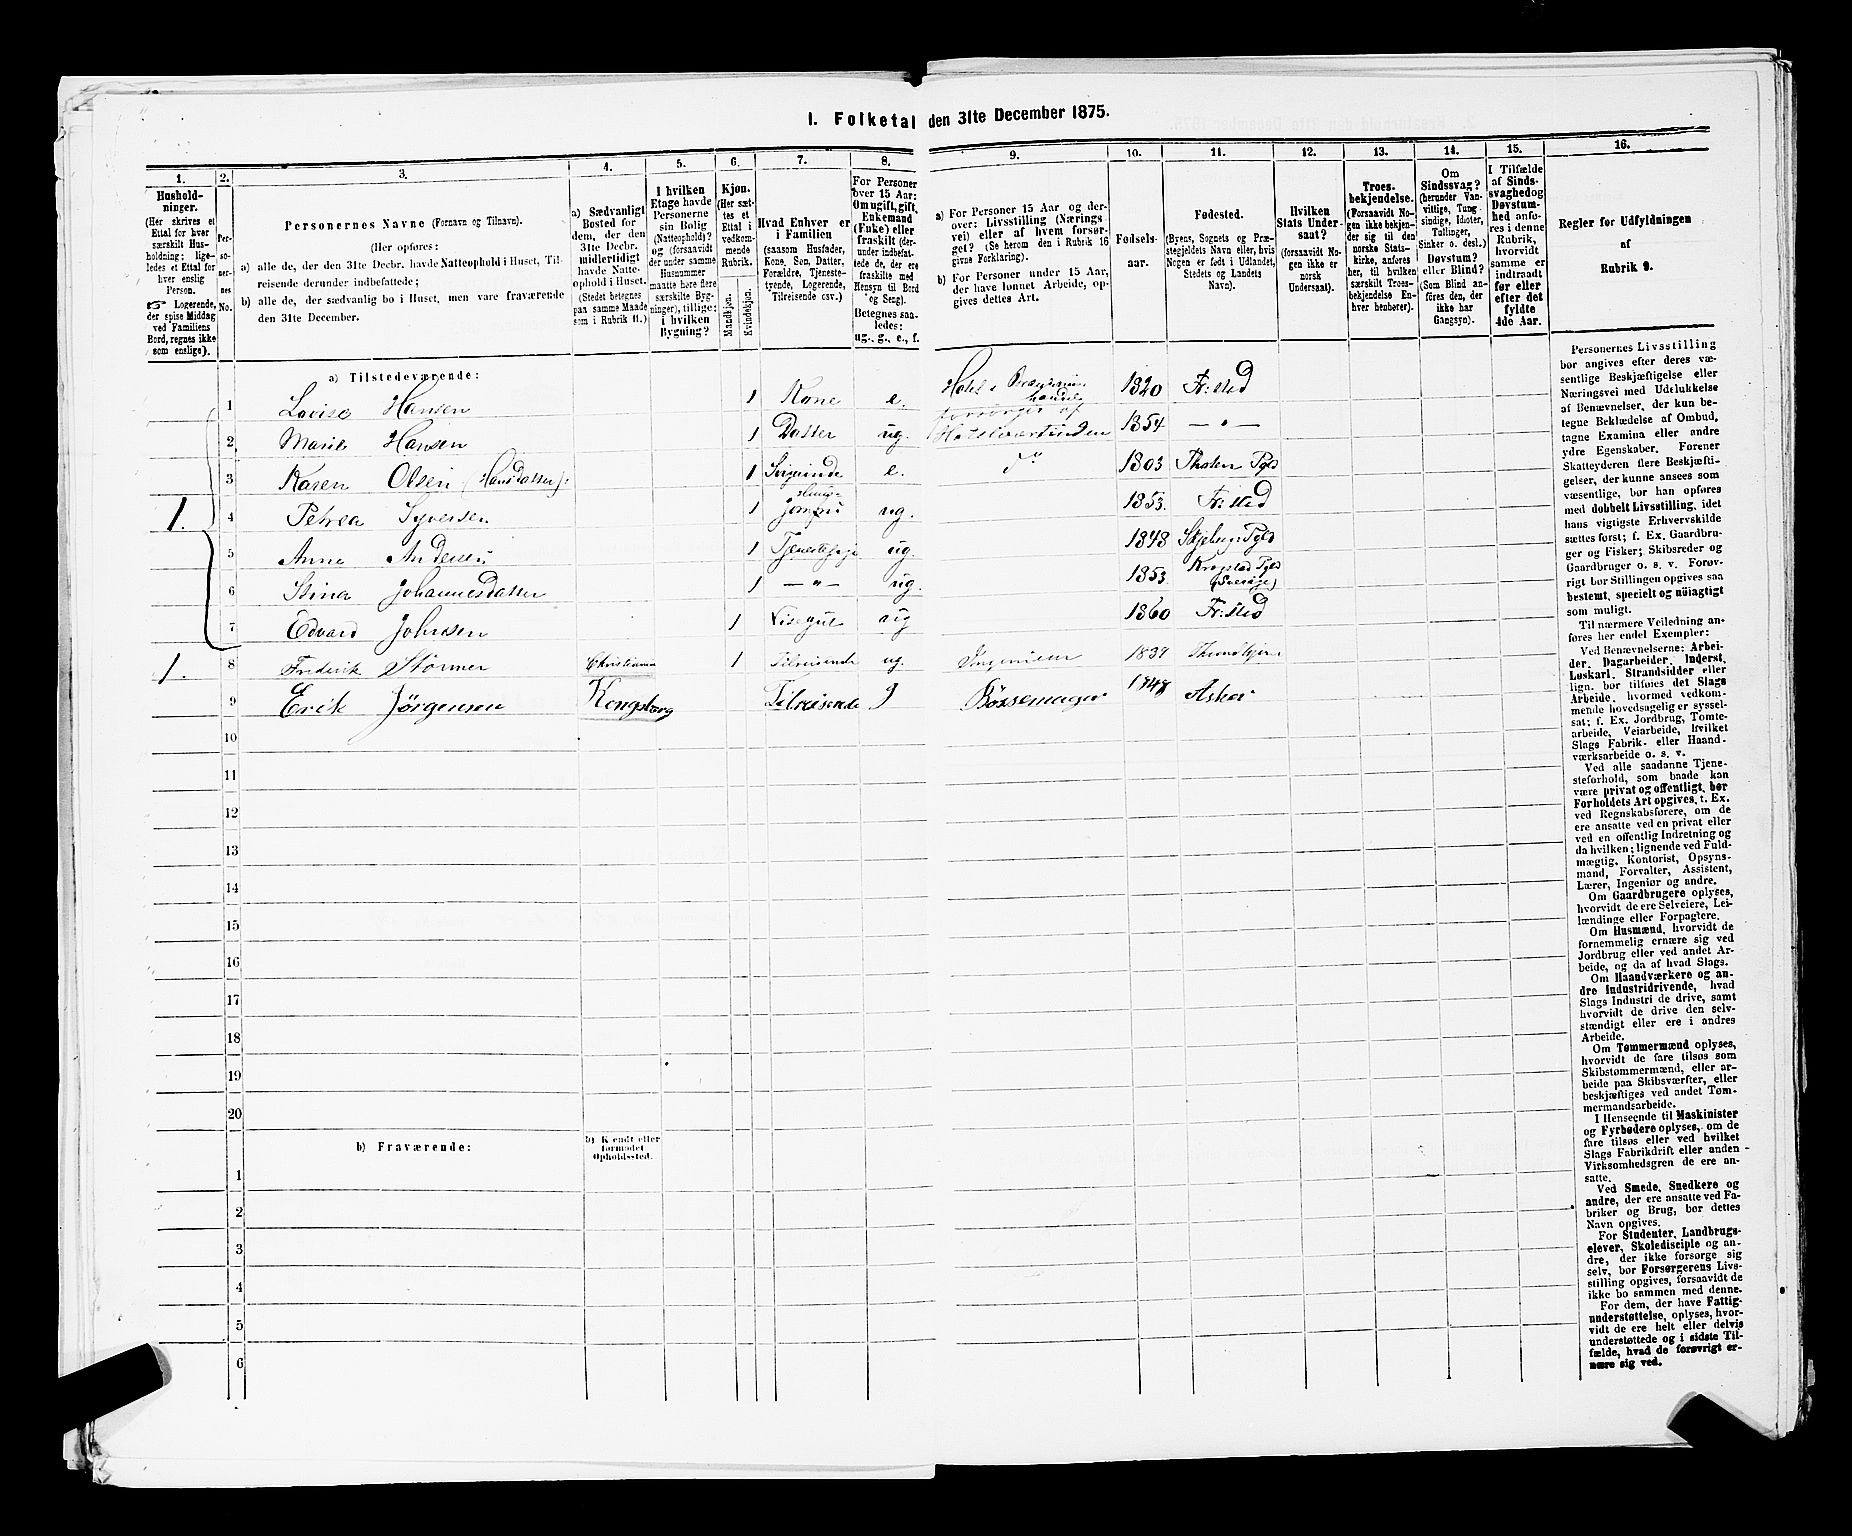 I. Folketal den 31te December 1875.
1.
Husholdninger.
(Her skrives et
Ettal for hver
særskilt Husholdning;
ligeledes et Ettal for
hver enslig
Person.
☞ Logerende,
der spise Middag
ved Familiens
Bord, regnes ikke
som enslige).
2.
Personernes
No.
3.
Personernes Navne (Fornavn og Tilnavn).
(Her opføres:
a) alle de, der den 31te Decbr. havde Natteophold i Huset, Tilreisende derunder indbefattede;
b) alle de, der sædvanlig bo i Huset, men vare fraværende
den 31te December.
4.
a) Sædvanligt
Bosted for
dem, der den
31te Decbr.
midlertidigt
havde Natteophold i Huset.
(Stedet betegnes
paa samme Maade
som i Rubrik 11.)
5.
I hvilken
Etage havde
Personerne
sin Bolig
(Natteophold)?
og (forsaavidt
der under samme
Husnummer
maatte høre flere
særskilte Bygninger), tillige:
i hvilken
Bygning?
6.
Kjøn.
(Her sættes et
Ettal i
vedkommende
Rubrik.
Mandkjøn.
Kvindekjøn.
7.
Hvad Enhver er
i Familien
(saasom Husfader,
Kone, Søn, Datter,
Forældre, Tjenestetyende, Logerende,
Tilreisende csv.)
8.
For Personer
over 15 Aar:
Om ugift, gift,
Enkemand
(Enke) eller
fraskilt (derunder indbefattede de, der ere
fraskilte med
Hensyn til Bord
og Seng).
Betegnes saaledes:
ug., g., e., f.
9.
a) For Personer 15 Aar og derover: Livsstilling (Næringsvei) eller af hvem forsørget? (Se herom den i Rubrik 16
givne Forklaring).
b) For Personer under 15 Aar,
der have lønnet Arbeide, opgives dettes Art.
10.
Fødselsaar.
11.
Fødested.
(Byens, Sognets og Præstegjeldets Navn eller, hvis
Nogen er født i Udlandet,
Stedets og Landets
Navn).
12.
Hvilken
Stats Undersaat?
(forsaavidt Nogen ikke er
norsk
Undersaat).
13.
Troesbekjendelse.
(Forsaavidt Nogen ikke bekjender sig til den
norske Statskirke, anføres
her, til hvilken
særskilt Troesbekjendelse Enhver henhører).
14.
Om
Sindssvag?
(herunder Vanvittige, Tungsindige, Idioter,
Tullinger,
Sinker o. desl.)
Døvstum?
eller Blind?
(Som Blind anføres den, der
ikke har
Gangsyn).
15.
I Tilfælde
af Sindssvaghed og
Døvstumhed anføres i denne
Rubrik,
hvorvidt
samme er
indtraadt
før eller
efter det
fyldte
4de Aar.
16.
Regler for Udfyldningen
af
Rubrik 9.
a) Tilstedeværende:
1 Lovise Hansen 1 Kone e. 1820 Fr:sted
2 Marie Hansen 1 Datter ug. forsørges af Hotelværtinden 1854 — „ —
3 Karen Olsen (Hansdatter). 1 e. do 1803 Thoten Pgld
1. 4 Petrea Syversen 1 ug. 1853. Fr:sted
5 Anne Andersen 1 Tjenestepige ug. 1848 Pgld
6 Stina Johannesdatter 1 — „ — ug. 1853 Krogstad Pgld (Sverige)
7 Edvard Johnsen 1 Visegut ug 1860 Fr:sted
1. 8 Frederik Størmer Christiania 1 Tilreisende ug. Ingenieur Throndhjem
9 Erik Jørgensen Kongsberg Tilreisende g Bøssemager 1848 Asker
10
11
12
13
14
15
16
17
18
19
20
b) Fraværende:
b) Kendt eller
formodet
Opholdssted.
1
2
3
4
5
6
Personernes Livsstilling
bør angives efter deres væsentlige Beskjæftigelse eller
Næringsvei med Udelukkelse
af Benævnelser, der kun betegne Beklædelse af Ombud,
tagne Examina eller andre
ydre Egenskaber. Forener
Skatteyderen flere Beskjæftigelser, der kunne ansees som
væsentlige, bør han opføres
med dobbelt Livsstilling, idet
hans vigtigste Erhvervskilde
sættes først; f. Ex. Gaardbruger og Fisker; Skibsreder og
Gaardbruger o. s. v. Forøvrigt bør Stillingen opgives saa
bestemt, specielt og nøiagtigt
som muligt.
Til nærmere Veiledning anføres her endel Exempler:
Ved Benævnelserne: Arbeider, Dagarbeider, Inderst,
Løskarl, Strandsidder eller
lign. bør tilføies det Slags
Arbeide, hvormed vedkommende hovedsagelig er sysselsat; f. Ex. Jordbrug, Tomtearbeide, Veiarbeide, hvilket
Slags Fabrik- eller Haandværksarbeide o. s. v.
Ved alle saadanne Tjenesteforhold, som baade kan
være privat og offentligt, bør
Forholdets Art opgives, t. Ex.
ved Regnskabsførere, om de
ere ansatte ved en privat eller
ved en offentlig Indretning og
da hvilken; lignende ved Fuldmægtig, Kontorist, Opsynsmand, Forvalter, Assistent,
Lærer, Ingeniør og andre.
Om Gaardbrugere oplyses,
hvorvidt de ere Selveiere, Leilændinge eller Forpagtere.
Om Husmænd, hvorvidt de
fornemmelig ernære sig ved
Jordbrug eller ved andet Arbeide, og da af hvad Slags.
Om Haandværkere og andre Industridrivende, hvad
Slags Industri de drive, samt
hvorvidt de drive den selvstændigt eller ere i andres
Arbeide.
Om Tømmermænd oplyses,
hvorvidt de fare tilsøs som
Skibstømmermænd, eller arbeide paa Skibsværfter, eller
beskjæftiges ved andet Tømmermandsarbeide.
I Henseende til Maskinister
og Fyrbødere oplyses, om de
fare tilsøs eller ved hvilket
Slags Fabrikdrift eller anden
Virksomhedsgren de ere ansatte.
Ved Smede, Snedkere og
andre, der ere ansatte ved Fabriker og Brug, bør dettes
Navn opgives.
For Studenter, Landbrugselever, Skoledisciple og andre, der ikke forsørge sig
selv, bør Forsørgerens Livsstilling opgives, forsaavidt de
ikke bo sammen med denne.
For dem, der have Fattigunderstøttelse, oplyses, hvorvidt de ere helt eller delvis
understøttede og i sidste Tilfælde, hvad de forøvrigt ernære sig ved.